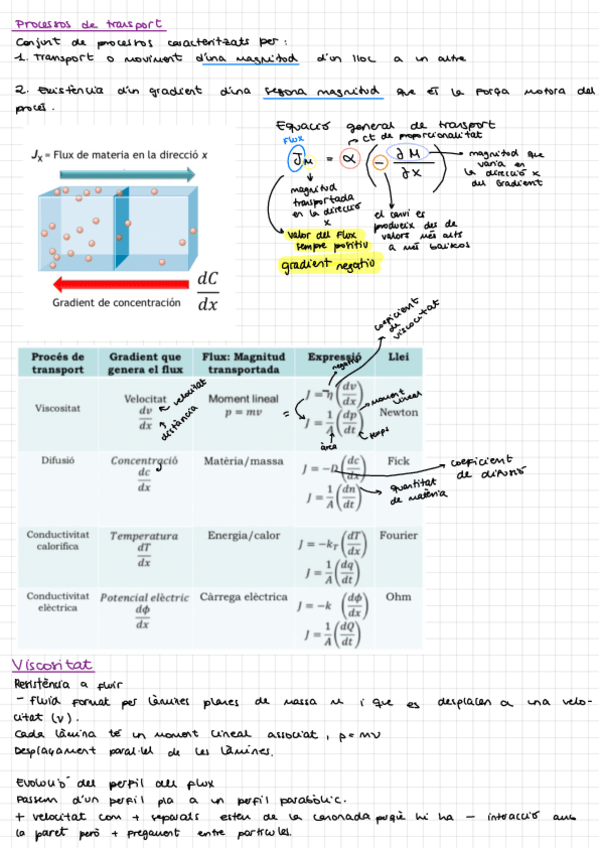 Processos de transport
Conjunt de processos caracteritzats per:
1. Transport o moviment d'una magnitud d'un lloc a un altre
2. Existència d'un gradient d'una segona magnitud que és la força motora del
procés.
Equació general de transport
Flux
ct de proporcionalitat
J_M = α (- ∂M/∂x)
magnitud que
varia en
la direcció x
del Gradient
magnitud
transportada
en la direcció
x
el canvi es
produeix des de
valors més alts
a més baixos
valor del flux
sempre positiu
gradient negatiu
Jx = Flux de materia en la direcció x
Gradient de concentración dC/dx
coeficient
de
viscositat
Procés de transport | Gradient que genera el flux | Flux: Magnitud transportada | Expressió | Llei
negatiu
Viscositat | Velocitat dv/dx | Moment lineal p = mv | J = -η(dv/dx) J = 1/A (dp/dt) | Newton
velocitat
distància
moment
lineal
temps
àrea
Difusió | Concentració dc/dx | Matèria/massa | J = -D(dc/dx) J = 1/A (dn/dt) | Fick
coeficient
de difusió
quantitat
de matèria
Conductivitat calorífica | Temperatura dT/dx | Energia/calor | J = -k_T (dT/dx) J = 1/A (dq/dt) | Fourier
Conductivitat elèctrica | Potencial elèctric dϕ/dx | Càrrega elèctrica | J = -k (dϕ/dx) J = 1/A (dQ/dt) | Ohm
Viscositat
Resistència a fluir
- Fluid format per làmines planes de massa m i que es desplacen a una velo-
citat (v).
Cada làmina té un moment lineal associat, p = mv
Desplaçament paral·lel de les làmines.
Evolució del perfil del flux
Passem d'un perfil pla a un perfil parabòlic.
+ velocitat com + separats estem de la canonada perquè hi ha - interacció amb
la paret però + fregament entre partícules.